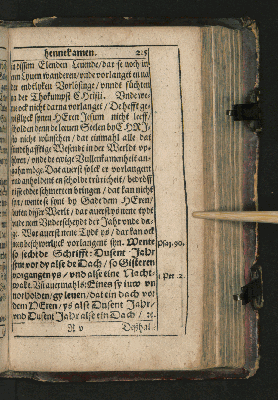 hennekamen. 215
in dissem Elenden Leunde/ dat se noch in
nn Lyuen wanderen/ unde vorlanget en na
der endtlyken Vorlösinge/ unnde süchten
na der Thokumpst Christi. Unde we-
me ock nicht darna vorlanget/ De hefft ge-
wißlyck synen HEren Jesum nicht leeff/
holden denn de leuen Seelen by CHRI-
sto nicht wünschen/ dat einmahl alle dat
sündthafftige Wesende in der Werldt vp-
hören/ unde de ewige Vullenkamenheit an-
gahn möge. Dat auerst solck er vorlangent
unde anholdent en scholde trürichest/ bedröff
nisse edder schmerten bringen/ dat kan nicht
syn/ wente se synt by Gade dem HEren/
buten disser Werlt/ dar auerst ys nene tydt
unde nen Underscheydt der Jahr unde da-
ge. Wor auerst nene Tydt ys/ dar kan ock
nen beschwerlyck vorlangent syn. Wente
so secht de Schrifft: Dusent Jahr
synt vor dy alse de Dach/ so Gisteren
vorgangen ys/ und alse eine Nacht-
wake. Psal. 90.
Vnauermahls: Einen sy iuw vn-
vorholden/ gy leuen/ dat ein dach vor
dem HEren/ ys alse Dusent Jahr/
und Dusent Jahr alse ein Dach/ 2c.
1 Pet. 2.
R v Deßhal-